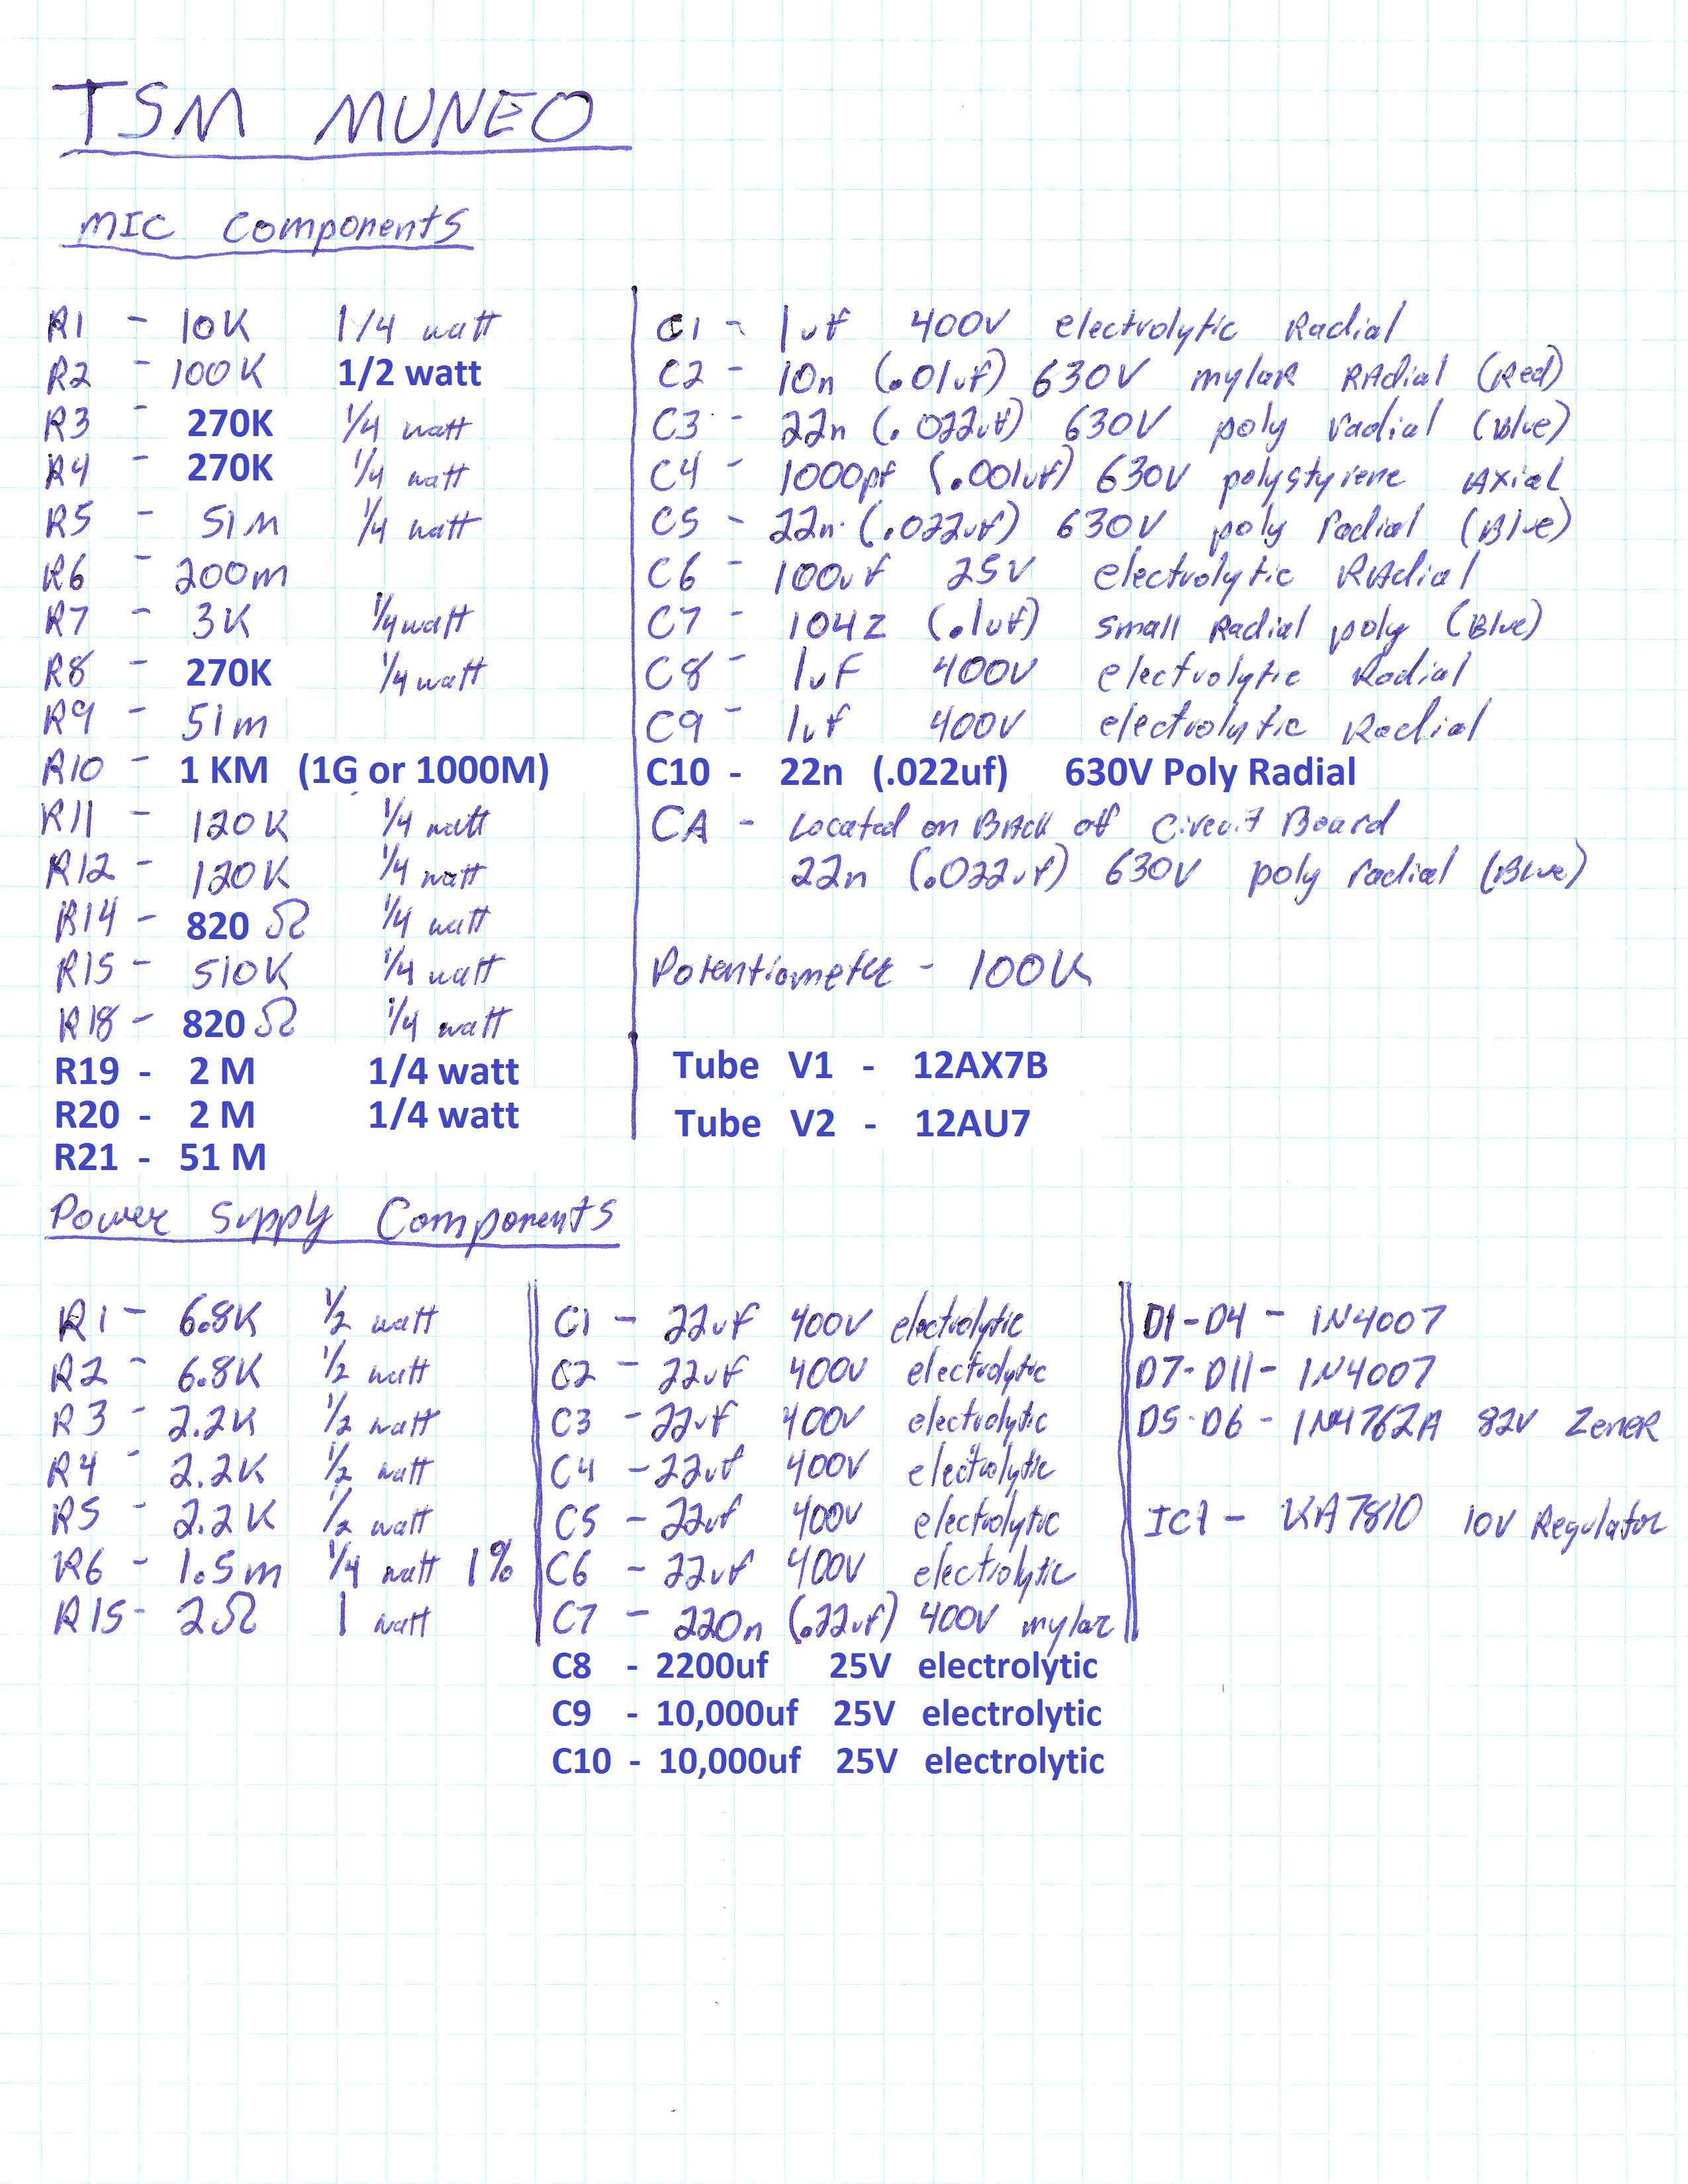 TSM MUNEO
MIC Components
R1 - 10K 1/4 watt
R2 - 100K 1/2 watt
R3 - 270K 1/4 watt
R4 - 270K 1/4 watt
R5 - 51M 1/4 watt
R6 - 200m
R7 - 3K 1/4 watt
R8 - 270K 1/4 watt
R9 - 51m
R10 - 1 KM (1G or 1000M)
R11 - 120K 1/4 watt
R12 - 120K 1/4 watt
R14 - 820 Ω 1/4 watt
R15 - 510K 1/4 watt
R18 - 820 Ω 1/4 watt
R19 - 2 M 1/4 watt
R20 - 2 M 1/4 watt
R21 - 51 M
C1 - 1uf 400V electrolytic Radial
C2 - 10n (.01uf) 630V mylar RAdial (Red)
C3 - 22n (.022uf) 630V poly radial (Blue)
C4 - 1000pf (.001uf) 630V polystyrene Axial
C5 - 22n (.022uf) 630V poly radial (Blue)
C6 - 100uf 25V electrolytic RAdial
C7 - 104Z (.1uf) small Radial poly (Blue)
C8 - 1uF 400V electrolytic Radial
C9 - 1uf 400V electrolytic Radial
C10 - 22n (.022uf) 630V Poly Radial
CA - Located on BAck of Circuit Board
22n (.022uf) 630V poly radial (Blue)
Potentiometer - 100K
Tube V1 - 12AX7B
Tube V2 - 12AU7
Power Supply Components
R1 - 6.8K 1/2 watt
R2 - 6.8K 1/2 watt
R3 - 2.2K 1/2 watt
R4 - 2.2K 1/2 watt
R5 - 2.2K 1/2 watt
R6 - 1.5m 1/4 watt 1%
R15 - 2Ω 1 watt
C1 - 22uf 400V electrolytic
C2 - 22uf 400V electrolytic
C3 - 22uf 400V electrolytic
C4 - 22uf 400V electrolytic
C5 - 22uf 400V electrolytic
C6 - 22uf 400V electrolytic
C7 - 220n (.22uf) 400V mylar
C8 - 2200uf 25V electrolytic
C9 - 10,000uf 25V electrolytic
C10 - 10,000uf 25V electrolytic
D1-D4 - 1N4007
D7-D11 - 1N4007
D5-D6 - 1N4762A 82V ZeneR
IC1 - KA7810 10V Regulator